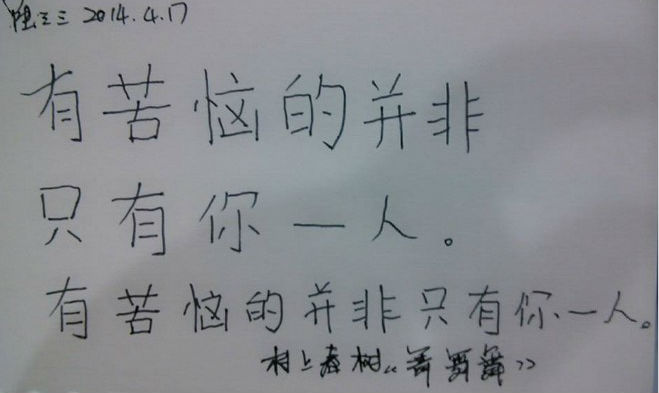 陆三三 2014.4.17
有苦恼的并非
只有你一人。
有苦恼的并非只有你一人。
村上春树《舞舞舞》